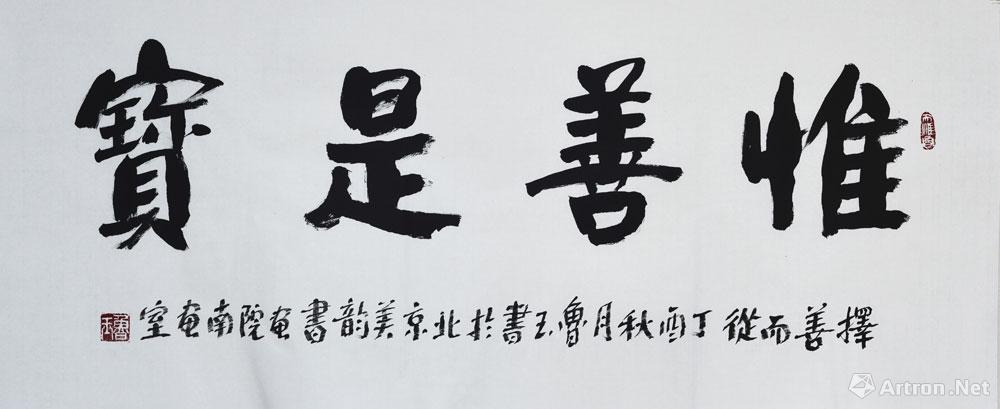 惟善是寶
擇善而從丁酉秋月魯玉書於北京美韵書畫院南畫室
Artron.Net